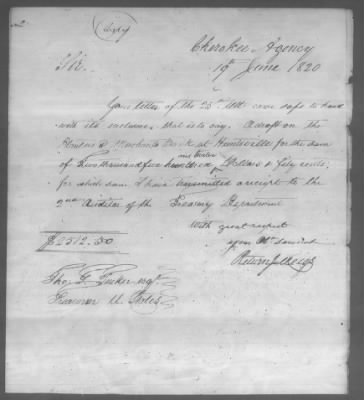 (Copy)
Cherokee Agency
19th June 1820
Sir.
Your letter of the 25th Ult came safe to hand
with its inclosure that is to say. A draft on the
Planters & Merchants Bank at Huntsville for the sum
and twelve
of Two thousand five hundred Dollars & fifty cents;
for which sum I have transmitted a receipt to the
2nd Auditor of the Treasury Department
With great respect
your Ob. Servant
Return J. Meigs
$2512.50
Tho. T. Tucker esqr.
Treasurer U. States